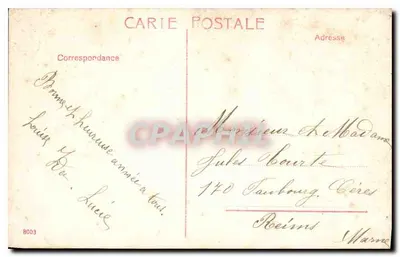 CARTE POSTALE
Correspondance
Adresse
Bonne et heureuse année à tous.
Louise Ida Lucie
Monsieur et Madame
Jules Courte
170 Faubourg Cérès
Reims
Marne
8003
CARTHAPOLIS